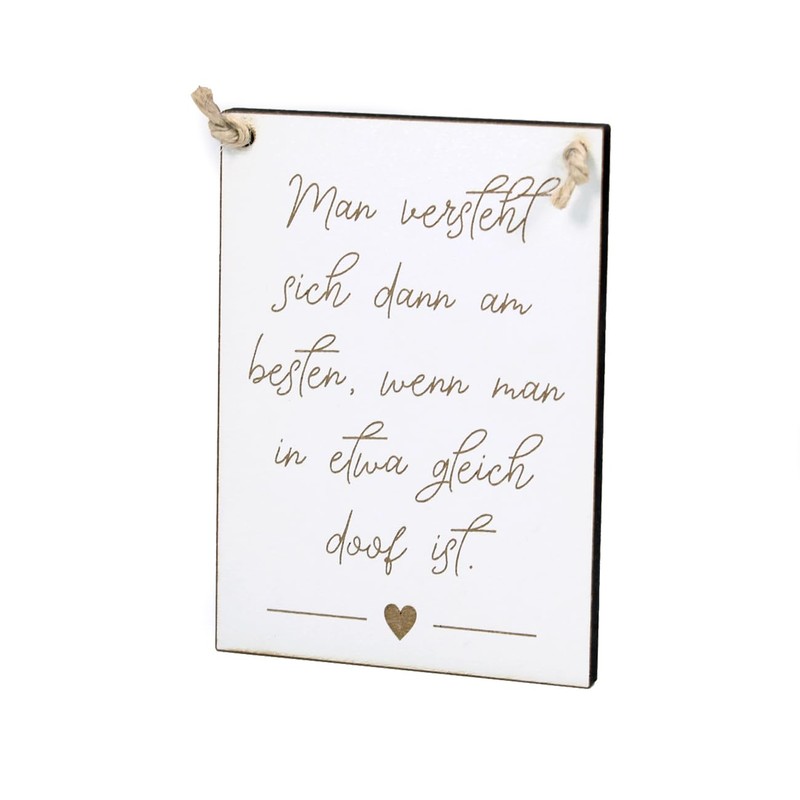 Man versteht
sich dann am
besten, wenn man
in etwa gleich
doof ist.